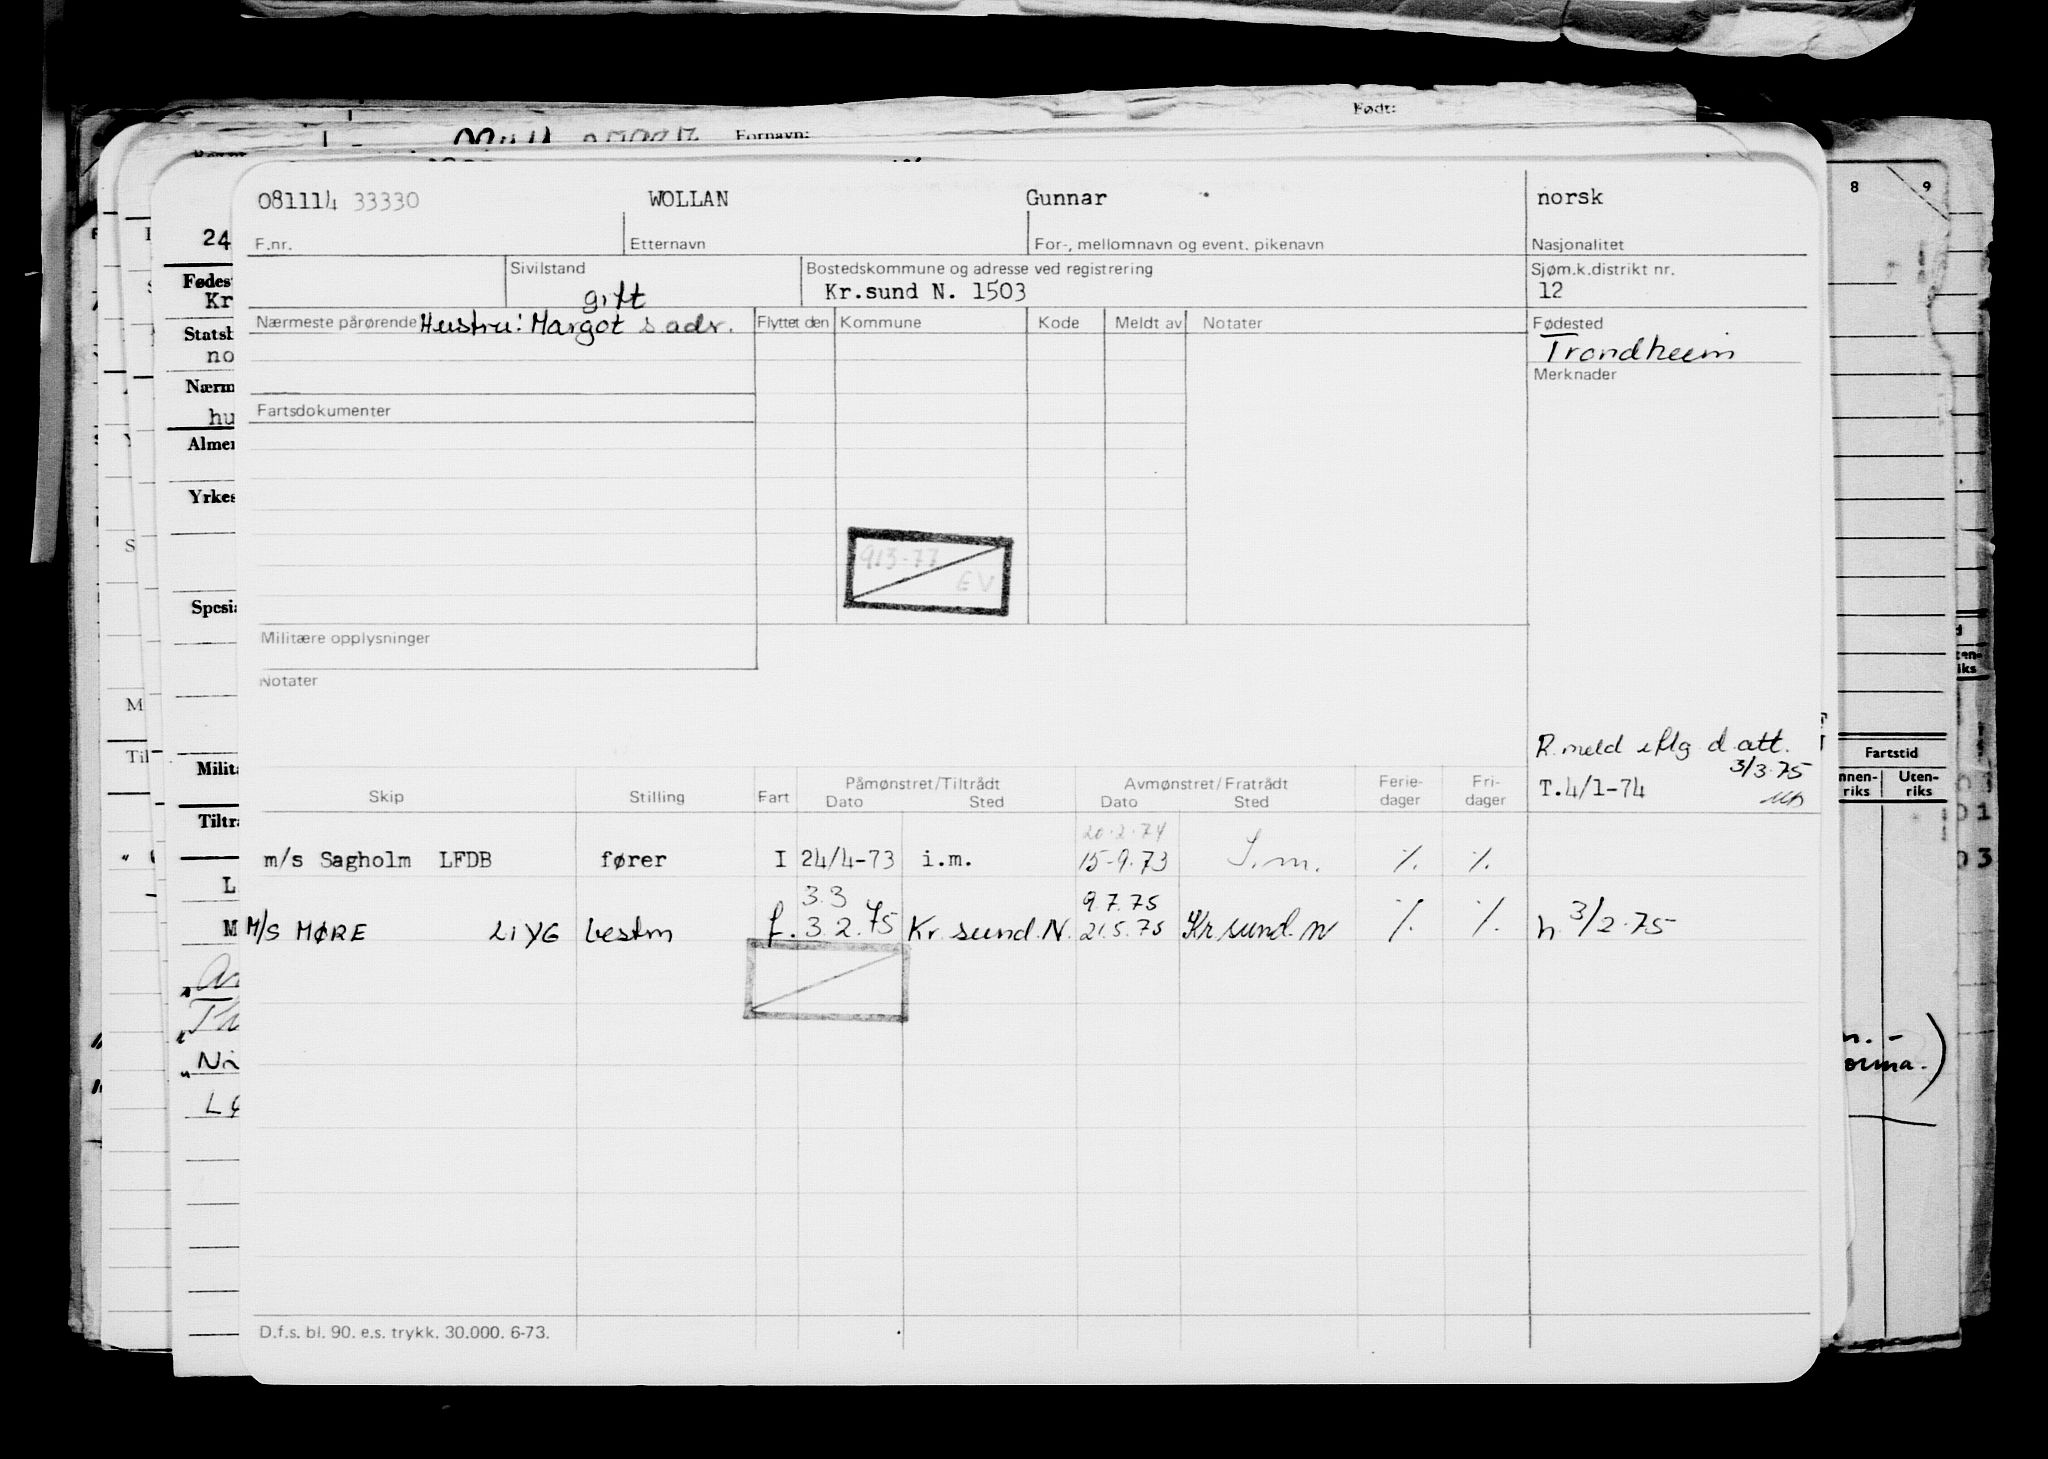 Født:
Fornavn:
081114 33330 WOLLAN Gunnar norsk
F.nr. Etternavn For-, mellomnavn og event. pikenavn Nasjonalitet
Sivilstand Bostedskommune og adresse ved registrering Sjøm.k.distrikt nr.
gift Kr.sund N. 1503 12
Nærmeste pårørende Hustru: Margot s adr. Flyttet den Kommune Kode Meldt av Notater Fødested
Trondheim
Merknader
Fartsdokumenter
913-77
EV
Militære opplysninger
Notater
R.meld iflg d.att.
3/3.75
T.4/1-74
Skip Stilling Fart Påmønstret/Tiltrådt Avmønstret/Fratrådt Ferie- Fri-
Dato Sted Dato Sted dager dager
20.2.74
m/s Sagholm LFDB fører I 24/4-73 i.m. 15-9.73 I.m. ٪ ٪
3.3 9.7.75
M/S MØRE LIYG bestm f. 3.2.75 Kr.sund.N. 21.5.75 Kr sund.N ٪ ٪ h 3/2.75
D.f.s. bl. 90. e.s. trykk. 30.000. 6-73.
24
Fødes
Kr
Statsb
no
Nærm
hu
Almen
Yrkes
Spesia
Milita
Tiltra
L
M
Ni
8 9
Fartstid
nnen- Uten-
riks riks
orma.)